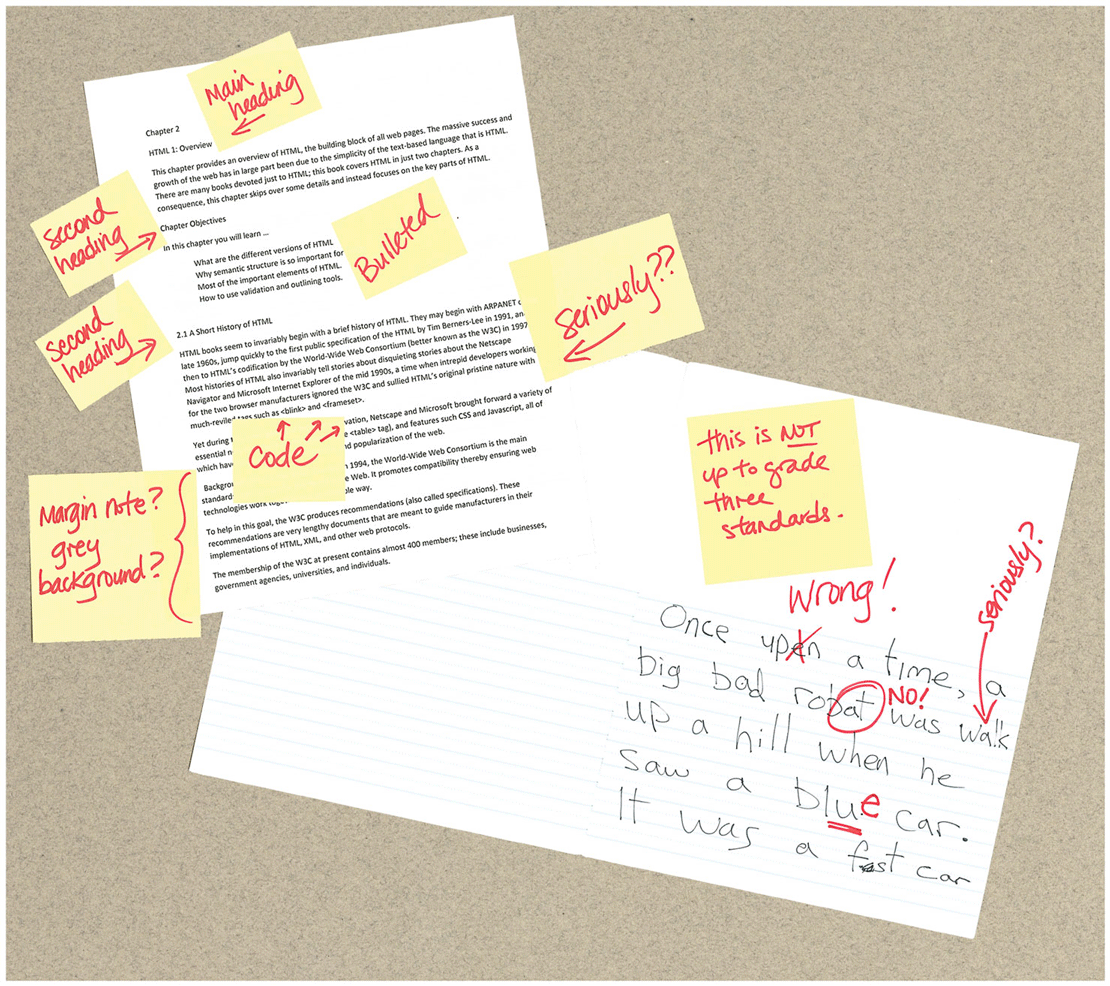 Main
heading
Chapter 2
HTML 1: Overview
This chapter provides an overview of HTML, the building block of all web pages. The massive success and
growth of the web has in large part been due to the simplicity of the text-based language that is HTML.
There are many books devoted just to HTML; this book covers HTML in just two chapters. As a
consequence, this chapter skips over some details and instead focuses on the key parts of HTML.
second
heading
Chapter Objectives
In this chapter you will learn ...
What are the different versions of HTML
Why semantic structure is so important for
Most of the important elements of HTML.
How to use validation and outlining tools.
Bulleted
Seriously??
second
heading
2.1 A Short History of HTML
HTML books seem to invariably begin with a brief history of HTML. They may begin with ARPANET
late 1960s, jump quickly to the first public specification of the HTML by Tim Berners-Lee in 1991, an
then to HTML's codification by the World-Wide Web Consortium (better known as the W3C) in 1997
Most histories of HTML also invariably tell stories about disquieting stories about the Netscape
Navigator and Microsoft Internet Explorer of the mid 1990s, a time when intrepid developers working
for the two browser manufacturers ignored the W3C and sullied HTML's original pristine nature with
much-reviled tags such as <blink> and <frameset>.
Yet during vation, Netscape and Microsoft brought forward a variety of
essential <table> tag), and features such CSS and Javascript, all of
which have popularization of the web.
Code
Margin note?
grey
background?
1994, the World-Wide Web Consortium is the main
standard Web. It promotes compatibility thereby ensuring web
technologies work way.
To help in this goal, the W3C produces recommendations (also called specifications). These
recommendations are very lengthy documents that are meant to guide manufacturers in their
implementations of HTML, XML, and other web protocols.
The membership of the W3C at present contains almost 400 members; these include businesses,
government agencies, universities, and individuals.
this is NOT
up to grade
three
standards.
Wrong!
seriously?
Once upen a time, a
big bad robat NO! was walk
up a hill when he
saw a blue car.
It was a fast car